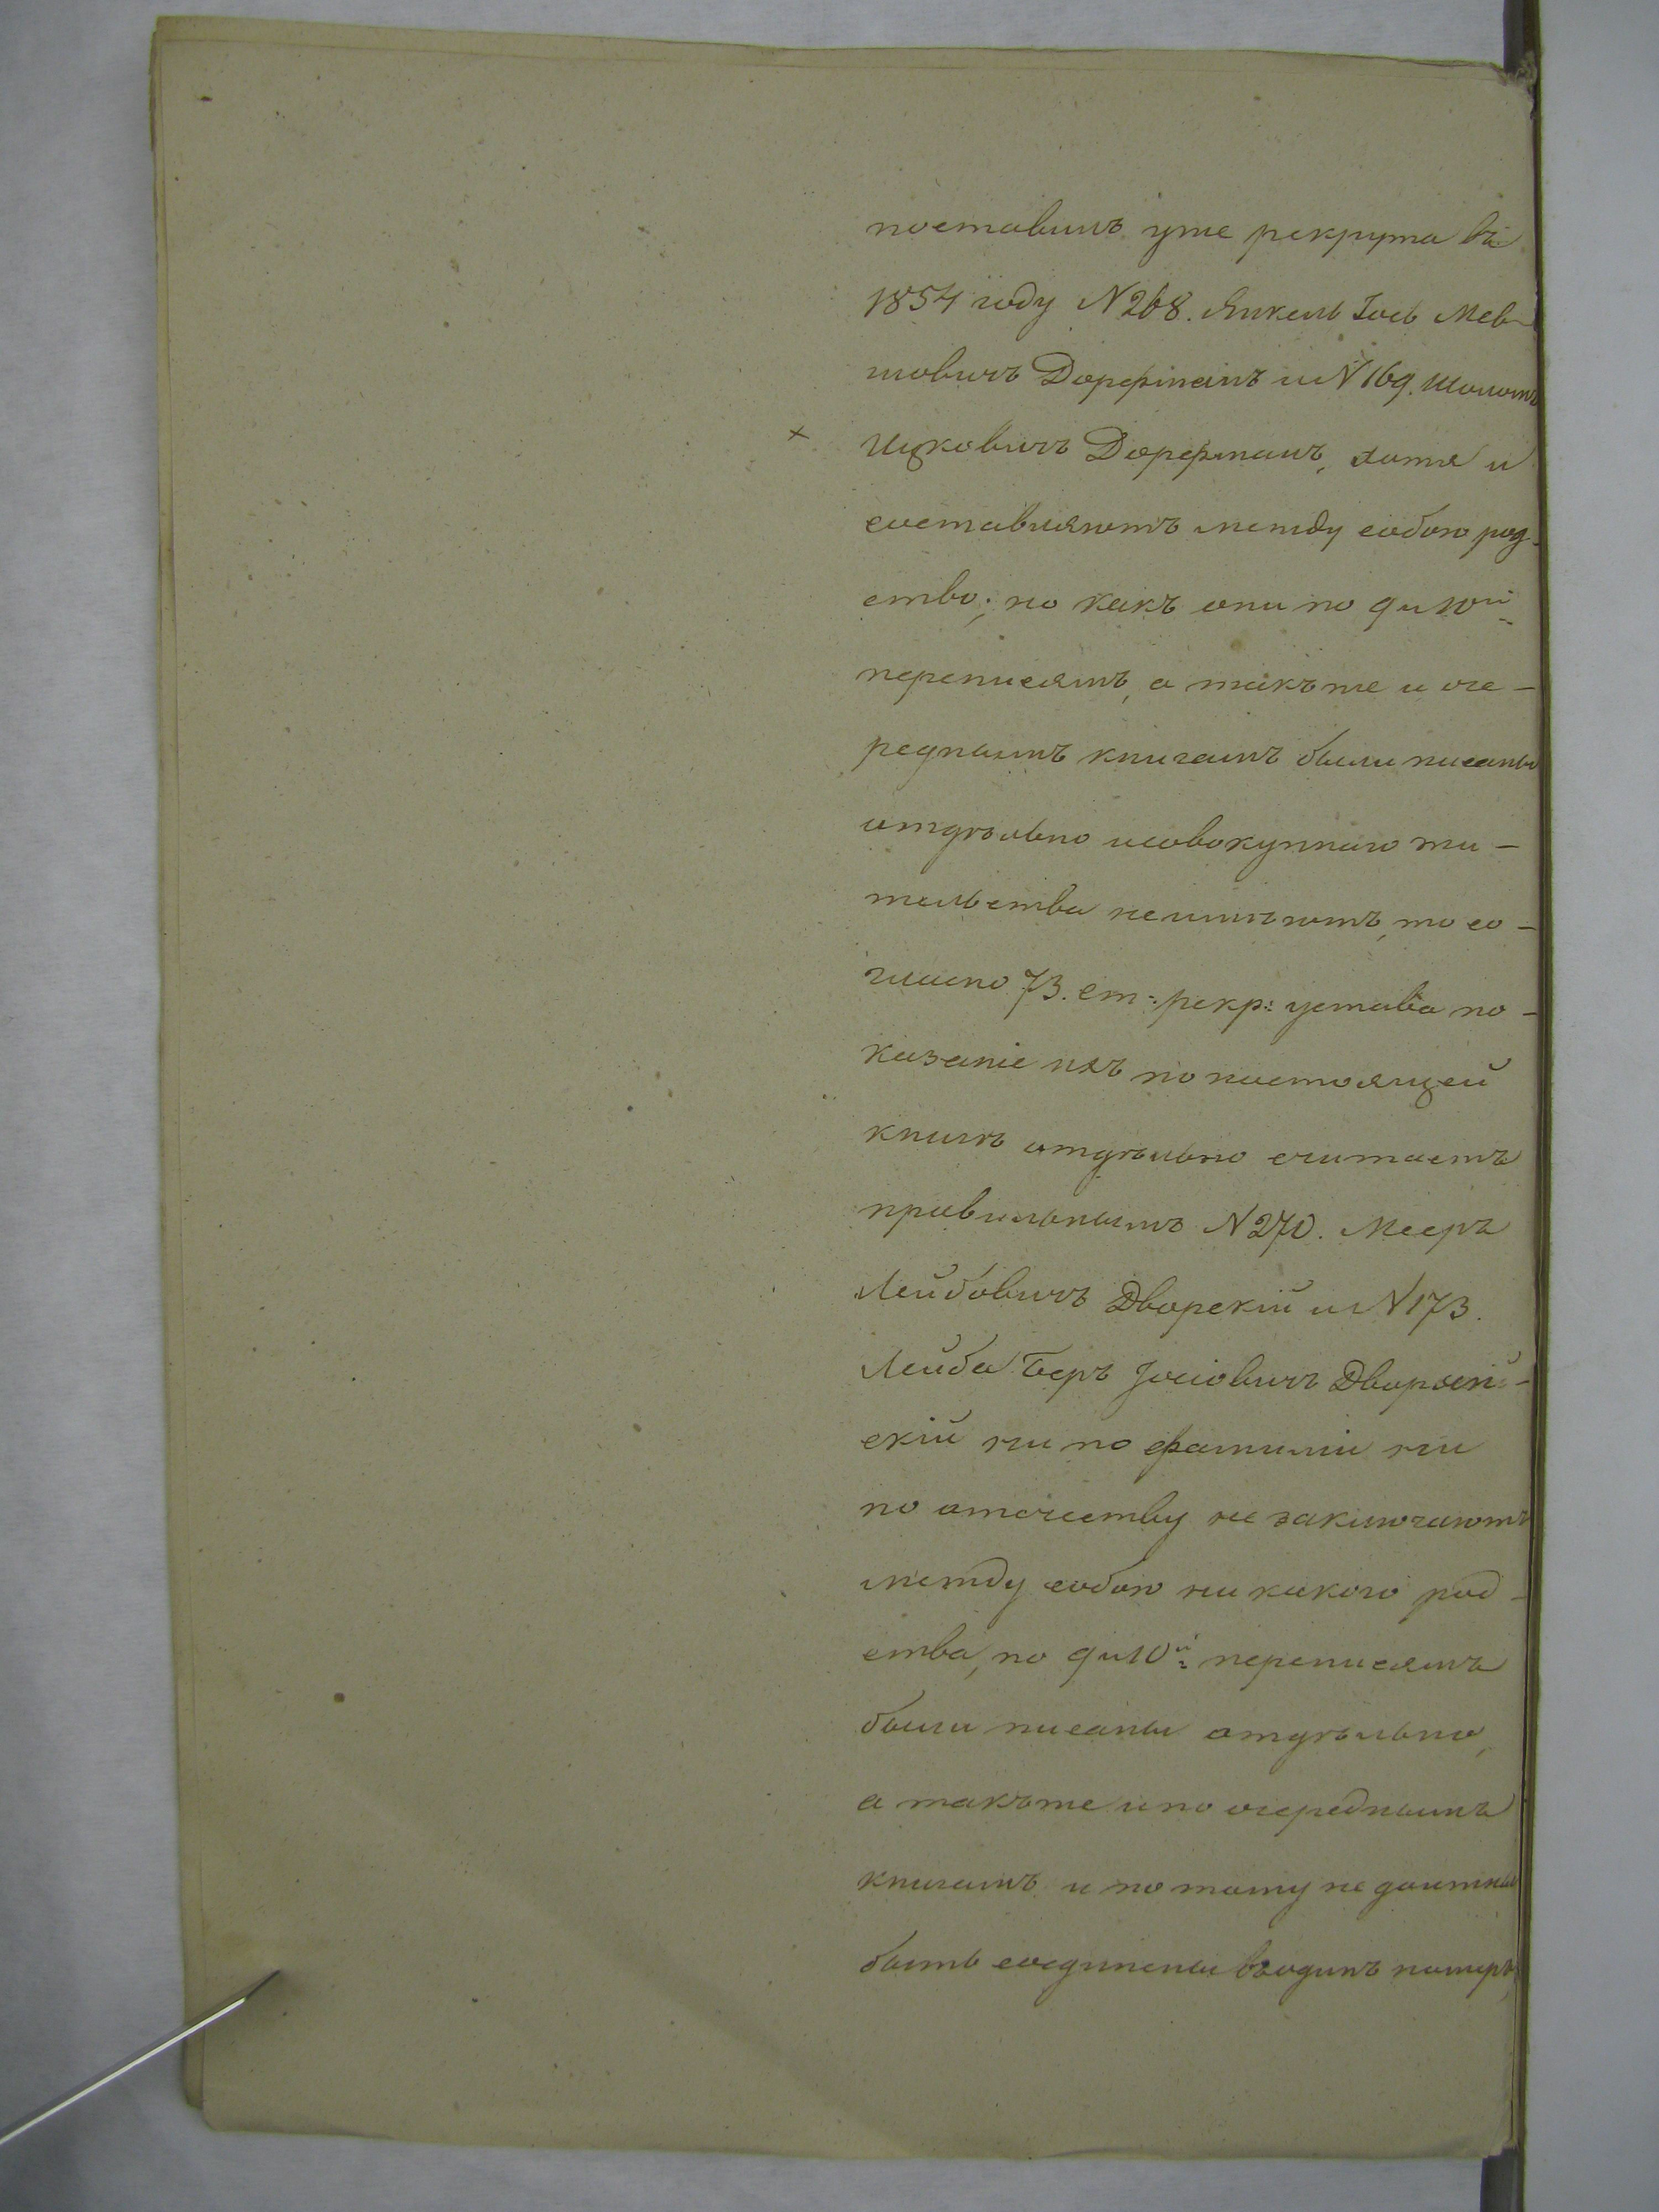 поставилъ уже рекрута въ
1854 году N 268. Янкель Іось Мев-
шовичъ Дорфманъ и N 169. Шоломъ
+ Ицковичъ Дорфманъ, хотя и
составляютъ между собою род-
ство; но какъ они по 9 и 10й
переписямъ, а такъ же и оче-
реднымъ книгамъ были писаны
отдѣльно и совокупнаго жи-
тельства не имѣютъ, то со-
гласно 73. ст: рекр: устава по-
казаніе ихъ по настоящей
книгѣ отдѣльно считаетъ
правильнымъ N 270. Мееръ
Лейбовичъ Дворскій и N 173.
Лейба Беръ Іосіовичъ
скій ни по фамиліи ни
по отечеству не заключаютъ
между собою ни какого род-
ства, по 9 и 10й переписямъ
были писаны отдѣльно,
а такъ же и по очереднымъ
книгамъ и по тому не должны
быть соединены въ одинъ номеръ,